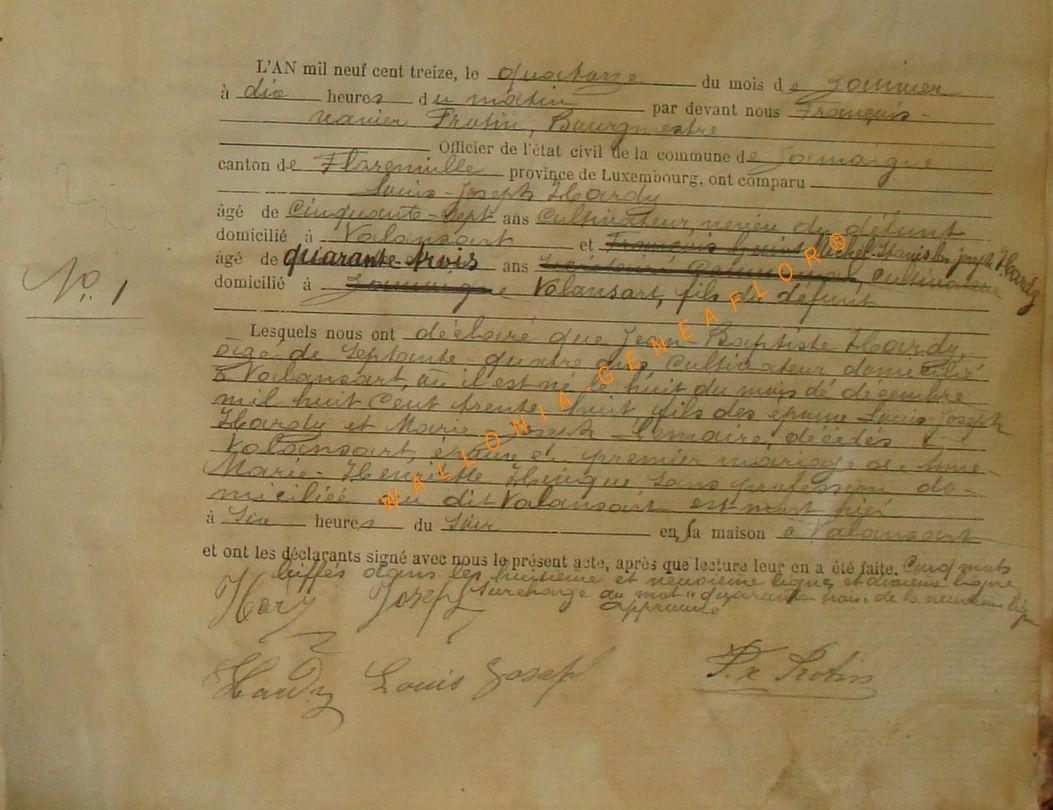 L'AN mil neuf cent treize, le quatorze du mois de Janvier
à dix heures du matin par devant nous François-
xavier Protin, Bourgmestre
Officier de l'état civil de la commune de Jamoigne
canton de Florenville province de Luxembourg, ont comparu
Louis-Joseph Hardy
âgé de Cinquante-sept ans Cultivateur, neveu du défunt
domicilié à Valansart et François Michel-Stanislas Joseph Hardy
âgé de quarante-trois ans cultivateur
domicilié à Valansart, fils du défunt
N°. 1
Lesquels nous ont déclaré que Jean Baptiste Hardy,
âgé de Septante-quatre ans, Cultivateur domicilié
à Valansart, où il est né le huit du mois de décembre
mil huit cent trente huit fils des époux Louis-Joseph
Hardy et Marie Joseph Lemaire, décédés à
Valansart, époux en premier mariage de
Marie-Henriette sans profession do-
miciliée au dit Valansart est mort hier
à Six heures du Soir en sa maison à Valansart
et ont les déclarants signé avec nous le présent acte, après que lecture leur en a été faite. Cinq mots
biffés dans les huitième et neuvième lignes et dixième ligne
Surcharge au mot "quarante trois" de la neuvième ligne
approuvé
Hardy Joseph
Hardy Louis Joseph
Fx Protin
WALLONIA-GENEAFLOR®